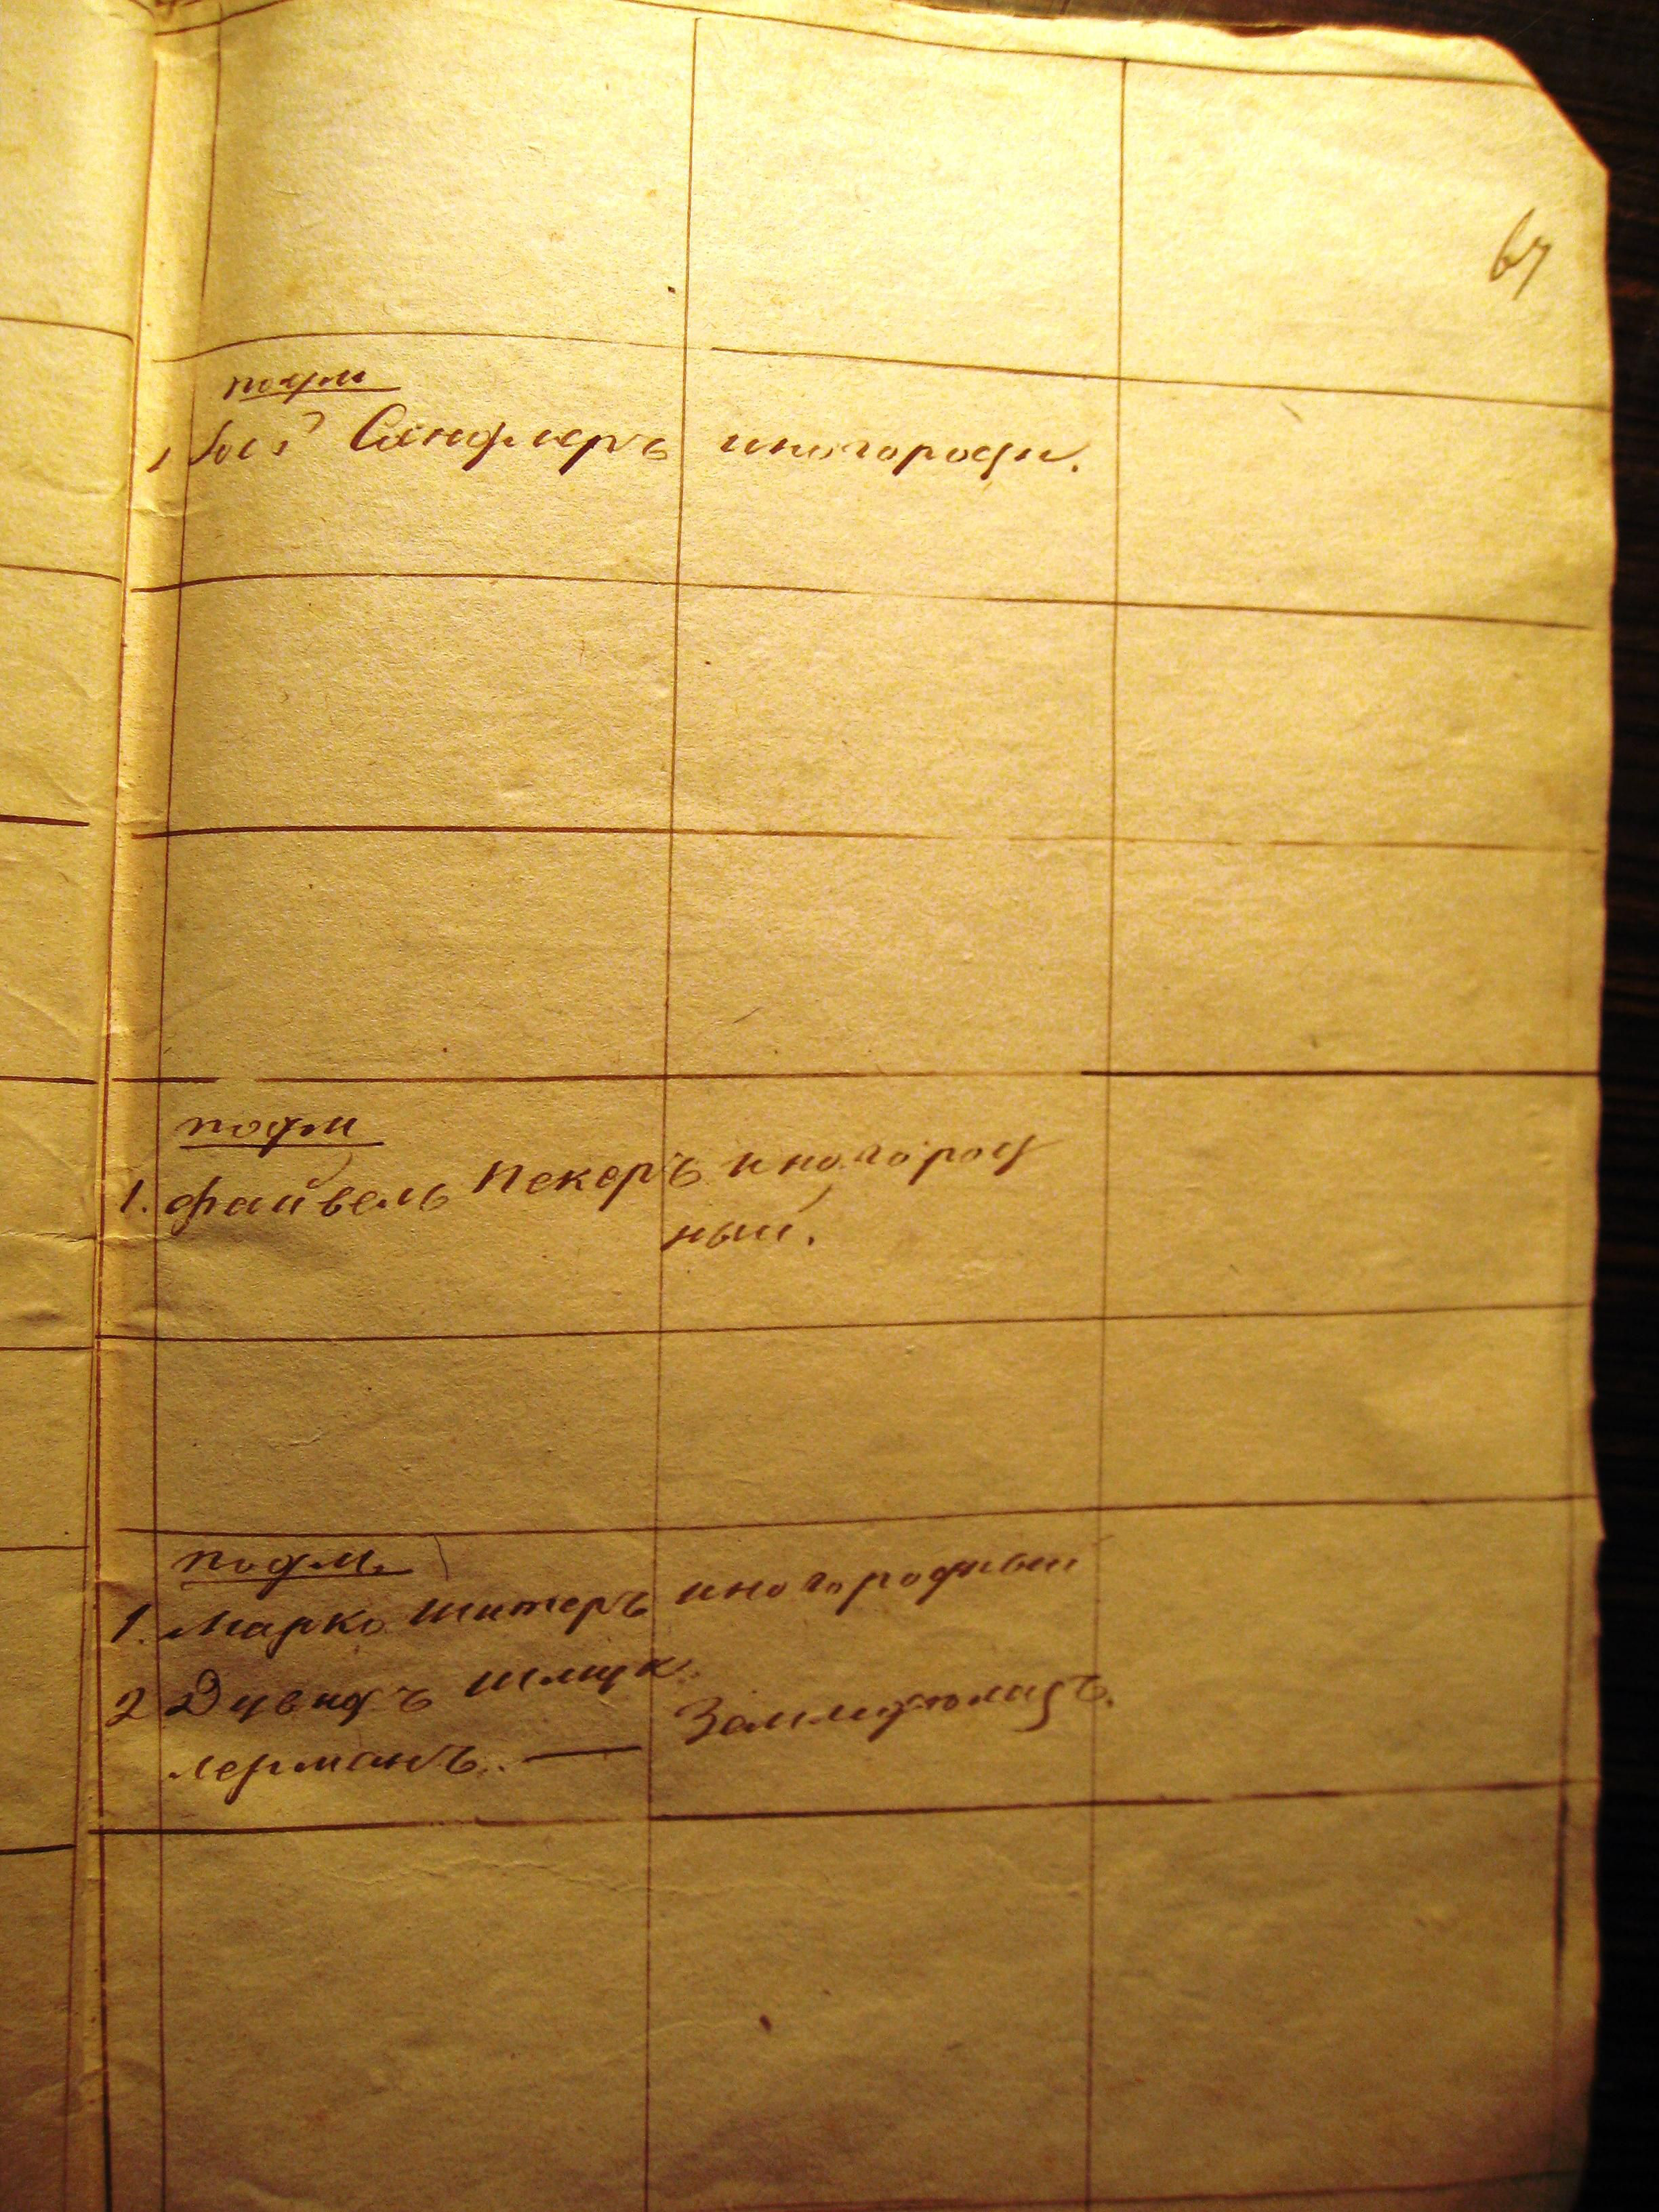 67
подм
1 Сандлеръ иногородн.
подм
1. файвель пекеръ иногород
ный.
подм.
1. Марко шитеръ иногородный
2 Дувидъ шмук
лерманъ. —